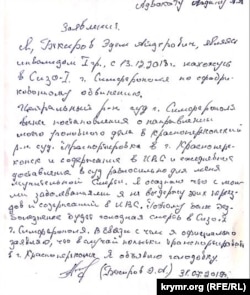 Адвокату Ладину А.А
Заявление.
Я, Бекиров Эдем Айдерович, являясь
инвалидом I гр., с 13.12.2018г. нахожусь
в Сизо-1 г. Симферополя по сфабри-
кованному обвинению.
Центральный р-н. суд г. Симферополя
вынес постановление о направлении
моего уголовного дела в Красноперекопский
р-н. суд. Транспортировка в г. Красноперекопск и содержание в ИВС и ежедневные
доставления в суд равносильно для меня
мучительной смерти. Я
заболеваниями не выдержу этих переез-
дов и содержаний в ИВС. Поэтому
будет голодная смерть в Сизо-1
г. Симферополя. В связи с чем я официально
заявляю, что в случай попытки транспортировки
в г. Красноперекопск. Я объявлю голодовку.
(Бекиров Э.А) 31.07.2019г.
Крим.org (RFE/RL)